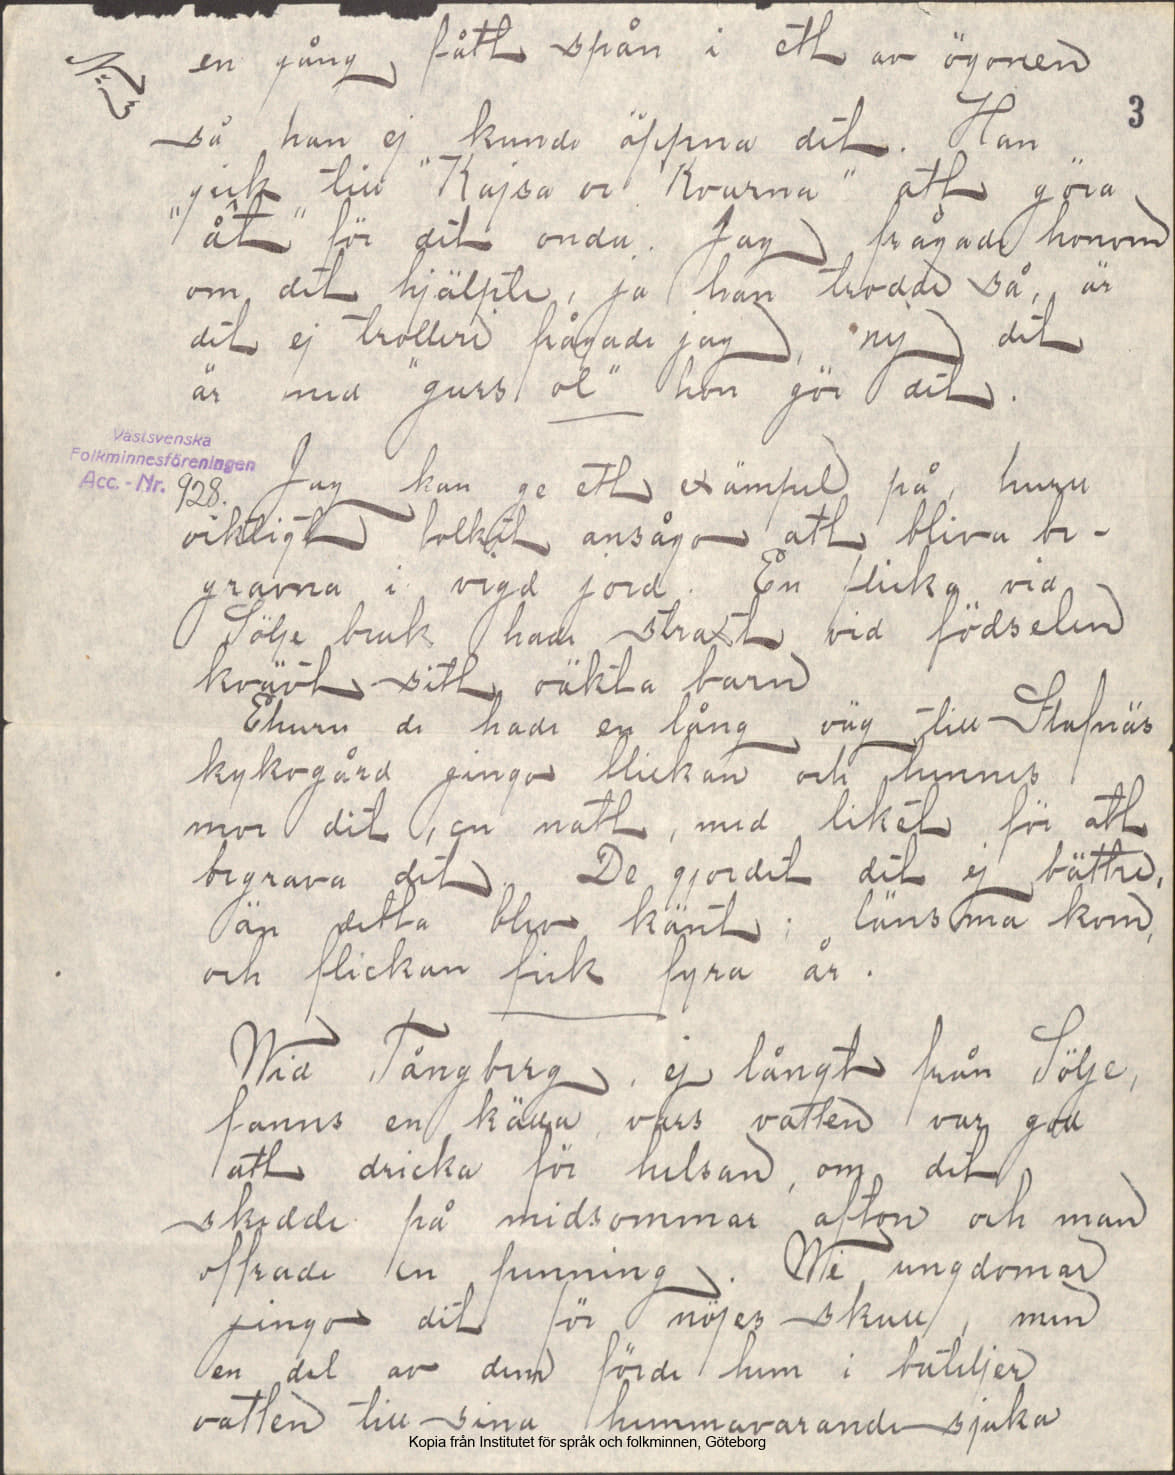 en gång fått spån i ett av ögonen
3
så han ej kunde öppna det. Han
gick till "Kajsa or Kvarna" att göra
"åt" för det onda. Jag frågade honom
om det hjälpte, ja han trodde så, är
det ej trolleri frågade jag, nej det
är med "gurs ol" hon gör det.
Västsvenska
Folkminnesföreningen
Acc. - Nr. 928.
Jag kan ge ett exämpel på, huru
viktigt folket ansågo att bliva be-
gravna i vigd jord. En flicka vid
Sölje bruk hade straxt vid födselen
kvävt sitt oäkta barn
Ehuru de hade en lång väg till Stafnäs
kykogård gingo flickan och hennes
mor dit, en natt, med liket för att
begrava det. De gjordet det ej bättre,
än detta blev känt; länsma kom,
och flickan fick fyra år.
Wid Tångberg, ej långt från Sölje,
fanns en källa vars vatten var god
att dricka för helsan, om det
skedde på midsommar afton och man
offrade en penning. Wi ungdomar
gingo dit för nöjes skull, men
en del av dem förde hem i buteljer
vatten till sina hemmavarande sjuka
Kopia från Institutet för språk och folkminnen, Göteborg